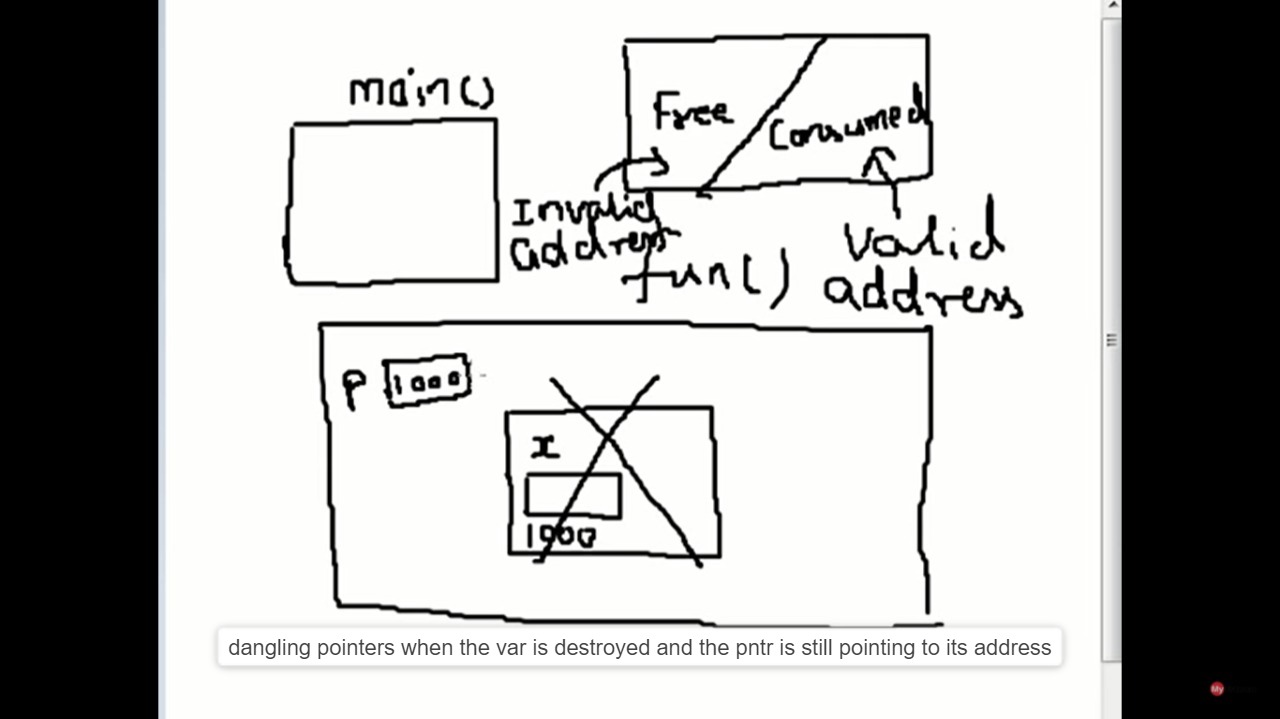 main()
Free
Consumed
Invalid
address
fun()
Valid
address
P 1000
x
1000
dangling pointers when the var is destroyed and the pntr is still pointing to its address
My